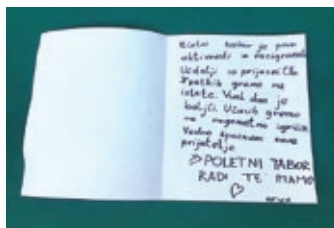 tabor je poln
aktivnosti in
Učitelji so prijazni. Ob
petkih gremo na
izlete. Vsak dan je
boljši. Včasih gremo
na igrišče
Vedno spoznam nove
prijatelje
POLETNI TABOR,
RADI TE IMAMO